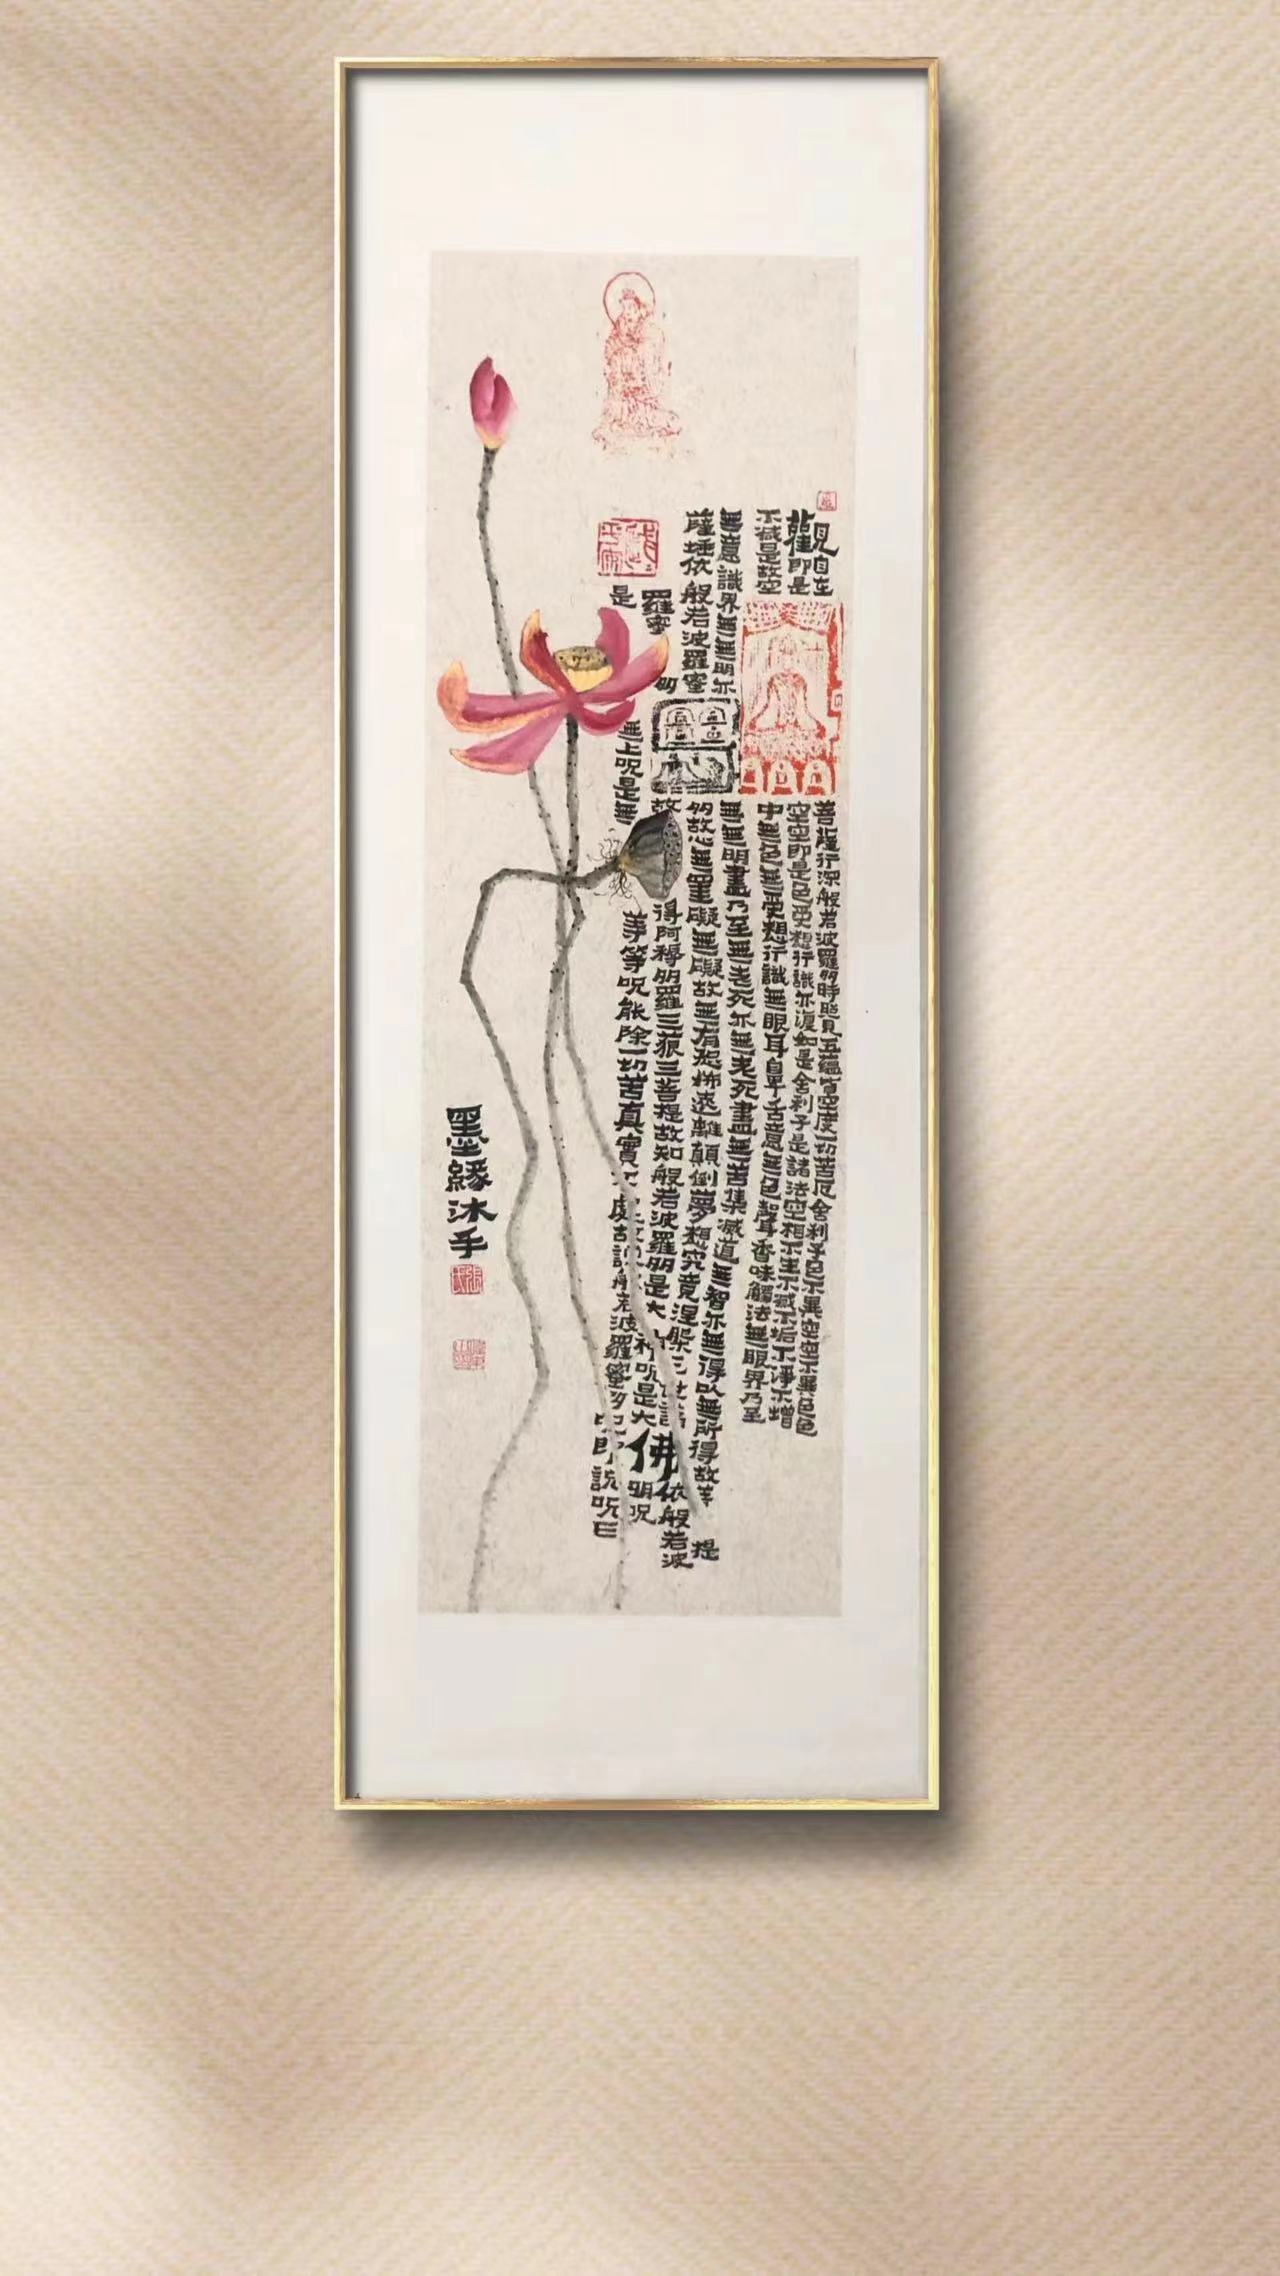 觀自在菩薩行深般若波羅多時照見五蘊皆空度一切苦厄舍利子色不異空空不異色色
即是空空即是色受想行識亦復如是舍利子是諸法空相不生不滅不垢不淨不增
不減是故空中無色無受想行識無眼耳鼻舌意無色聲香味觸法無眼界乃至
無意識界無無明亦無無明盡乃至無老死亦無老死盡無苦集滅道無智亦無得以無所得故菩提
薩埵依般若波羅蜜多故心無罣礙無礙故無有恐怖遠離顛倒夢想究竟涅槃三世諸佛依般若波
羅蜜多故得阿耨多羅三藐三菩提故知般若波羅多是大神呪是大明呪
是無上呪是無等等呪能除一切苦真實不虛故說般若波羅蜜多呪即說呪曰
墨緣沐手